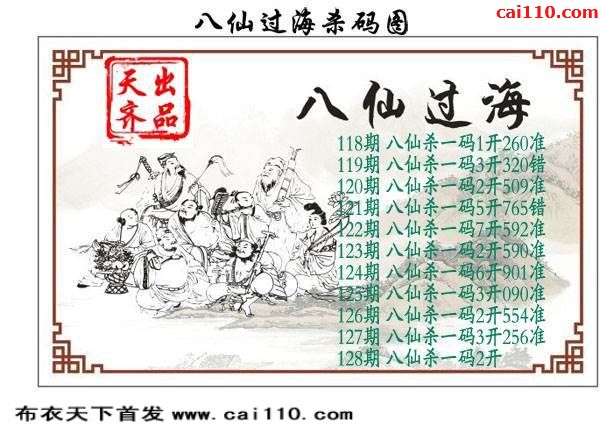 八仙过海杀码图
cai110.com
天齐
出品
八仙过海
118期 八仙杀一码1开260准
119期 八仙杀一码3开320错
120期 八仙杀一码2开509准
121期 八仙杀一码5开765错
122期 八仙杀一码7开592准
123期 八仙杀一码2开590准
124期 八仙杀一码6开901准
125期 八仙杀一码3开090准
126期 八仙杀一码2开554准
127期 八仙杀一码3开256准
128期 八仙杀一码2开
布衣天下首发 www.cai110.com